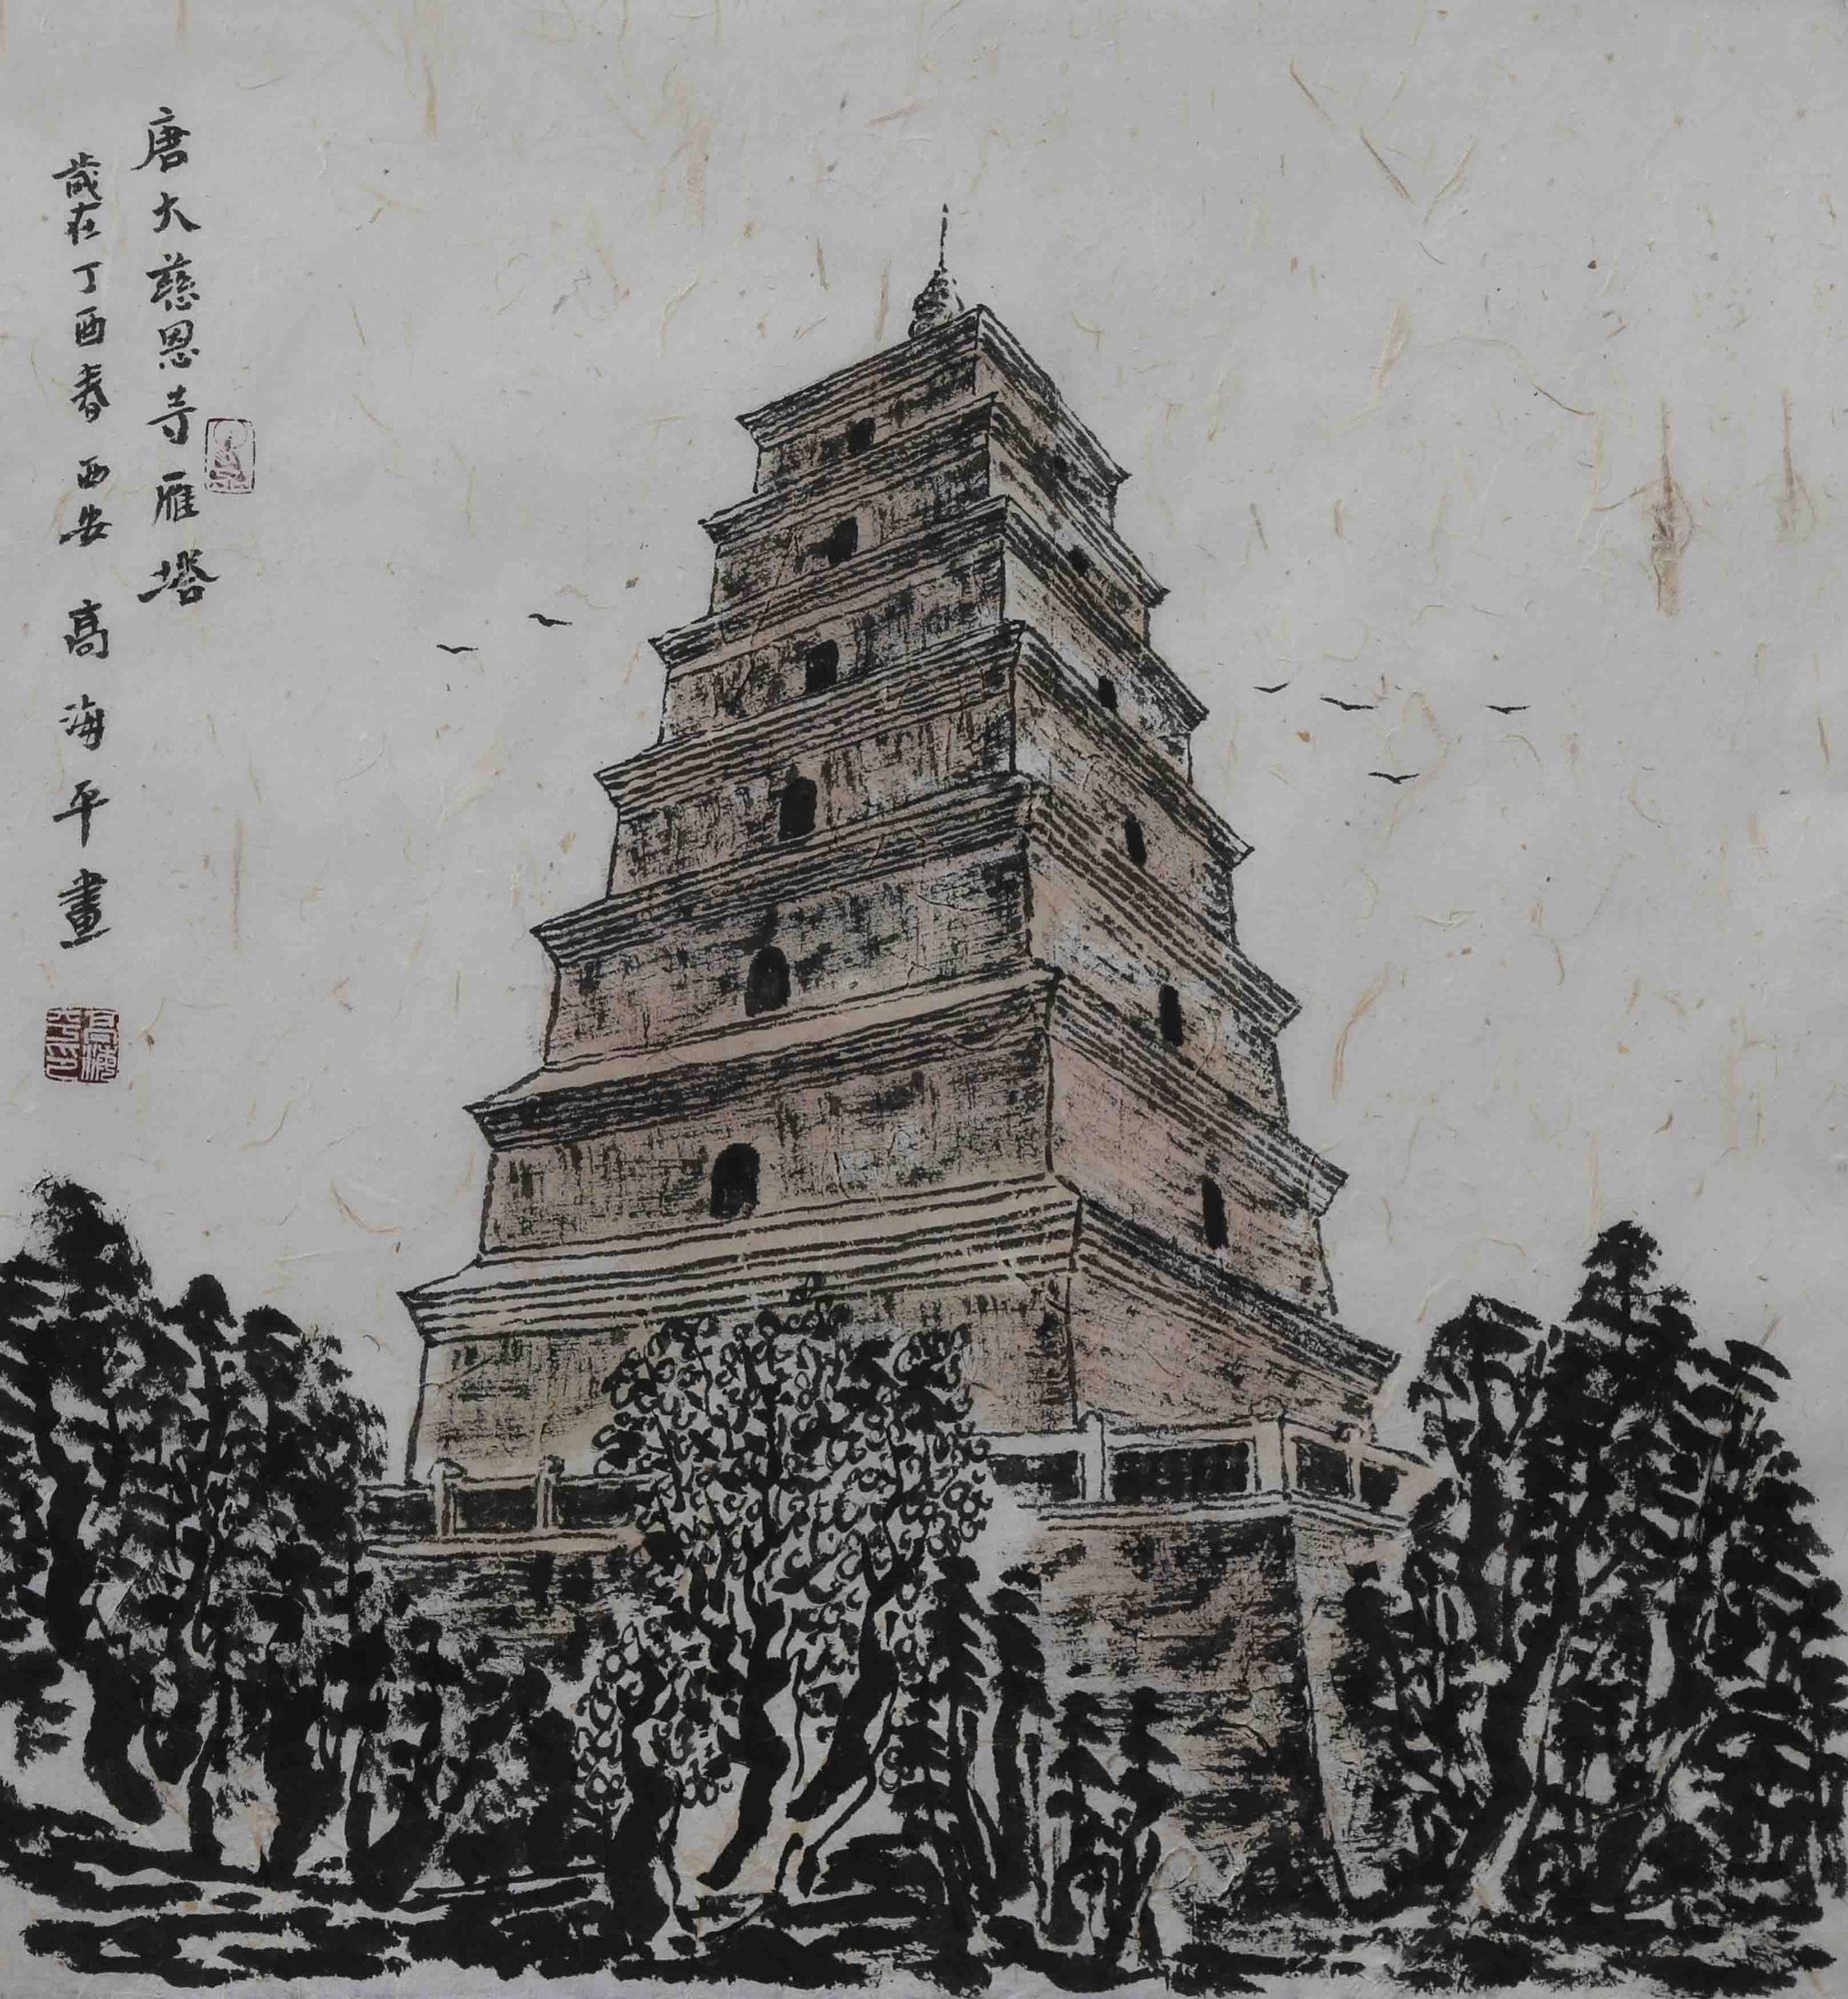 唐大慈恩寺雁塔
歲在丁酉春西安高海平畫